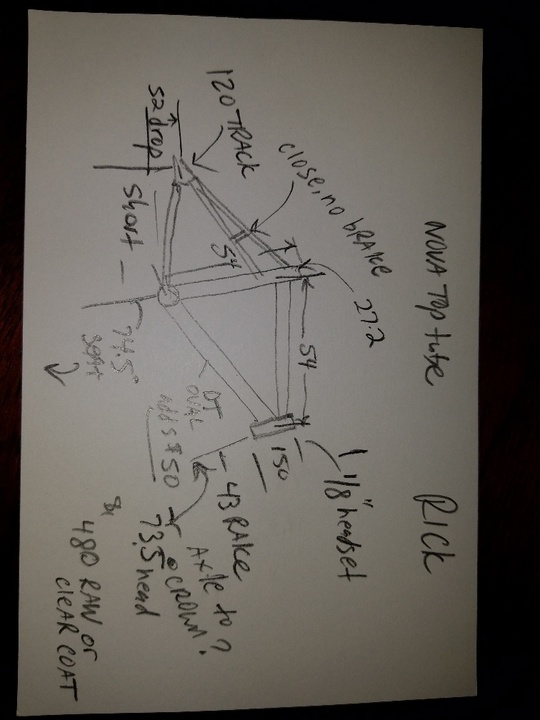 NOVA Top tube
RICK
120 TRACK
close, no bRAKE
27.2
52 drop
short
54
54
74.5°
seat
DT
OVAL
adds $50
150
1 1/8" headset
43 RAKE
AXle to
CROWN?
73.5 head
480 RAW or
clEAR COAT